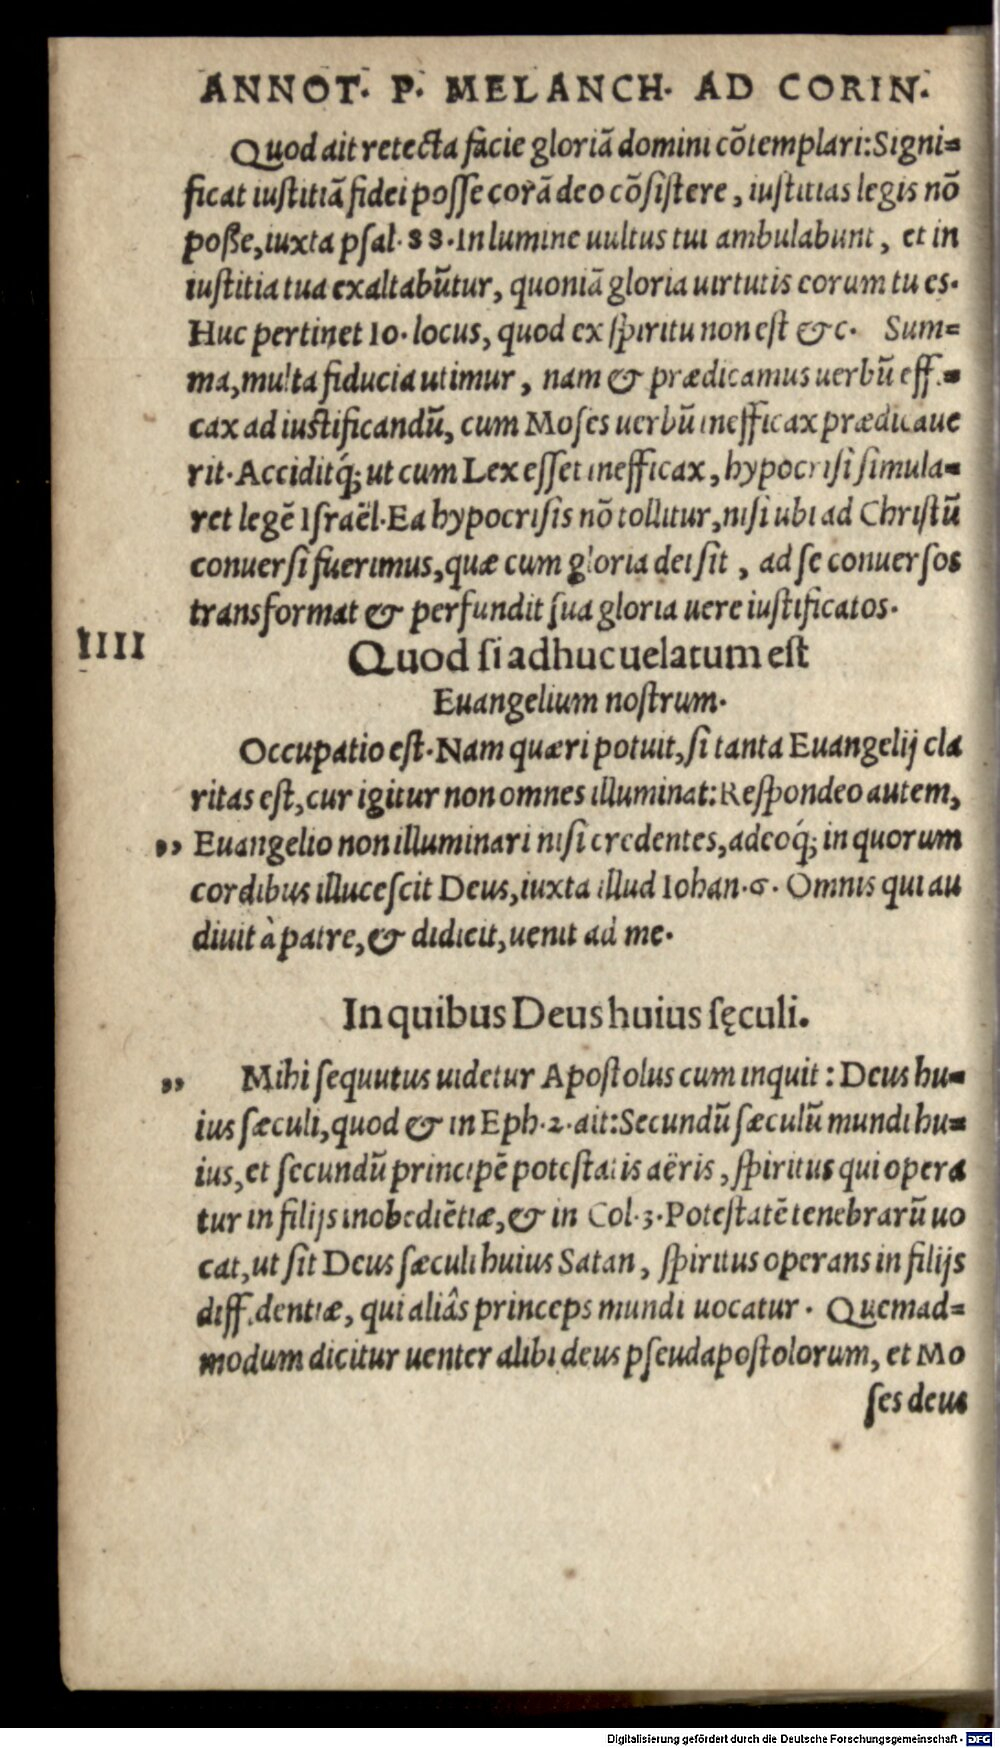 ANNOT. P. MELANCH. AD CORIN.
Quod ait retecta facie gloriā domini cōtemplari: Signi=
ficat iuſtitiā fidei poſſe corā deo cōſiſtere, iuſtitias legis nō
poſſe, iuxta pſal. 88. In lumine uultus tui ambulabunt, et in
iuſtitia tua exaltabūtur, quoniā gloria uirtutis eorum tu es.
Huc pertinet 10. locus, quod ex ſpiritu non est &c. Sum=
ma, multa fiducia utimur, nam & prædicamus uerbū effi=
cax ad iuſtificandū, cum Moſes uerbū inefficax prædicaue
rit. Acciditq́; ut cum Lex eſſet inefficax, hypocriſi ſimula=
ret legē Iſraël. Ea hypocriſis nō tollitur, niſi ubi ad Chriſtū
conuerſi fuerimus, quæ cum gloria dei ſit, ad ſe conuerſos
transformat & perfundit ſua gloria uere iuſtificatos.
IIII
Quod ſi adhuc uelatum eſt
Euangelium noſtrum.
Occupatio eſt. Nam quæri potuit, ſi tanta Euangelij cla
ritas eſt, cur igitur non omnes illuminat: Reſpondeo autem,
,, Euangelio non illuminari niſi credentes, adeoq́; in quorum
cordibus illuceſcit Deus, iuxta illud Iohan. 6. Omnis qui au
diuit à patre, & didicit, uenit ad me.
In quibus Deus huius ſęculi.
,, Mihi ſequutus uidetur Apoſtolus cum inquit: Deus hu=
ius ſæculi, quod & in Eph. 2. ait: Secundū ſæculū mundi hu=
ius, et ſecundū principē poteſtatis aëris, ſpiritus qui opera
tur in filijs inobediētiæ, & in Col. 3. Poteſtatē tenebrarū uo
cat, ut ſit Deus ſæculi huius Satan, ſpiritus operans in filijs
diffidentiæ, qui aliâs princeps mundi uocatur. Quemad=
modum dicitur uenter alibi deus pſeudapoſtolorum, et Mo
ſes deus
Digitalisierung gefördert durch die Deutsche Forschungsgemeinschaft - DFG